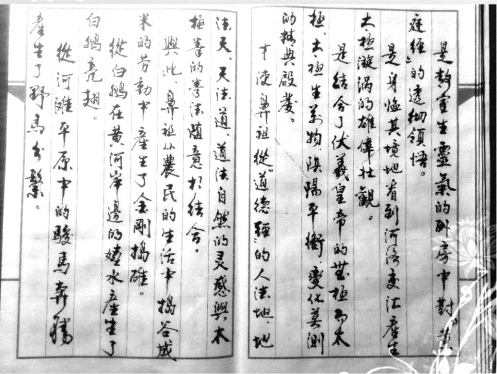 是生靈氣的卧房中對《黃
庭經》的透彻領悟。
是身临其境地看到河洛交汇產生
太極漩涡的雄偉壮觀。
是结合了伏羲皇帝的無極而太
極、太極生萬物陰陽平衡變化莫測
的與啟發。
才使鼻祖從《道德經》的人法地、地
法天、天法道、道法自然的灵感與太
極拳的拳法意相结合。
與此,鼻祖從農民的生活中搗谷成
米的劳動中產生了金剛搗碓。
從白鹅在黄河岸邊的嬉水產生了
白鹅亮翅。
從河滩平原中的駿馬奔腾
產生了野馬分鬃。